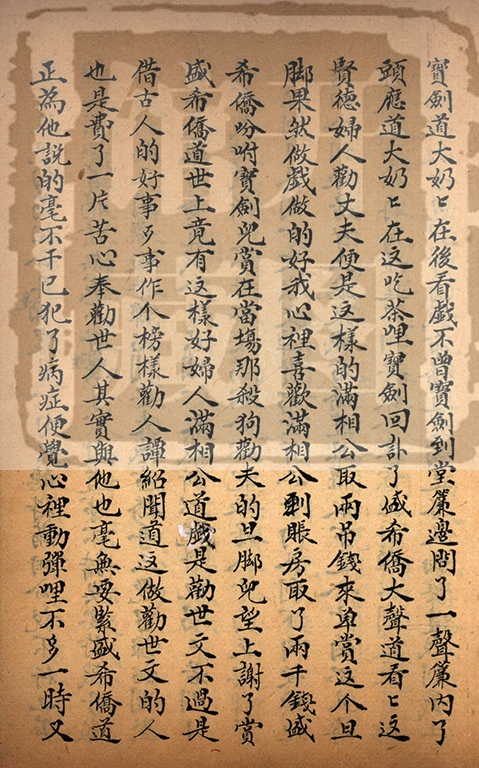 寶劍道大奶〻在後看戲不曾寶劍到堂簾邊問了一聲簾内了
頭應道大奶〻在这吃茶哩寶劍回訃了盛希僑大聲道看〻这
賢德婦人勸丈夫便是这樣的滿相公取兩吊錢來单賞这个旦
脚果然做戲做的好我心裡喜歡滿相公到賬房取了兩千錢盛
希僑吩咐寶劍兒賞在當塲那殺狗勸夫的旦脚兒望上謝了賞
盛希僑道世上竟有这樣好婦人滿相公道戲是勸世文不過是
借古人的好事歹事作个榜樣勸人譚紹聞道这做勸世文的人
也是費了一片苦心奉勸世人其實與他也毫無要緊盛希僑道
正為他說的毫不干已犯了病症便覺心裡動彈哩不多一時又